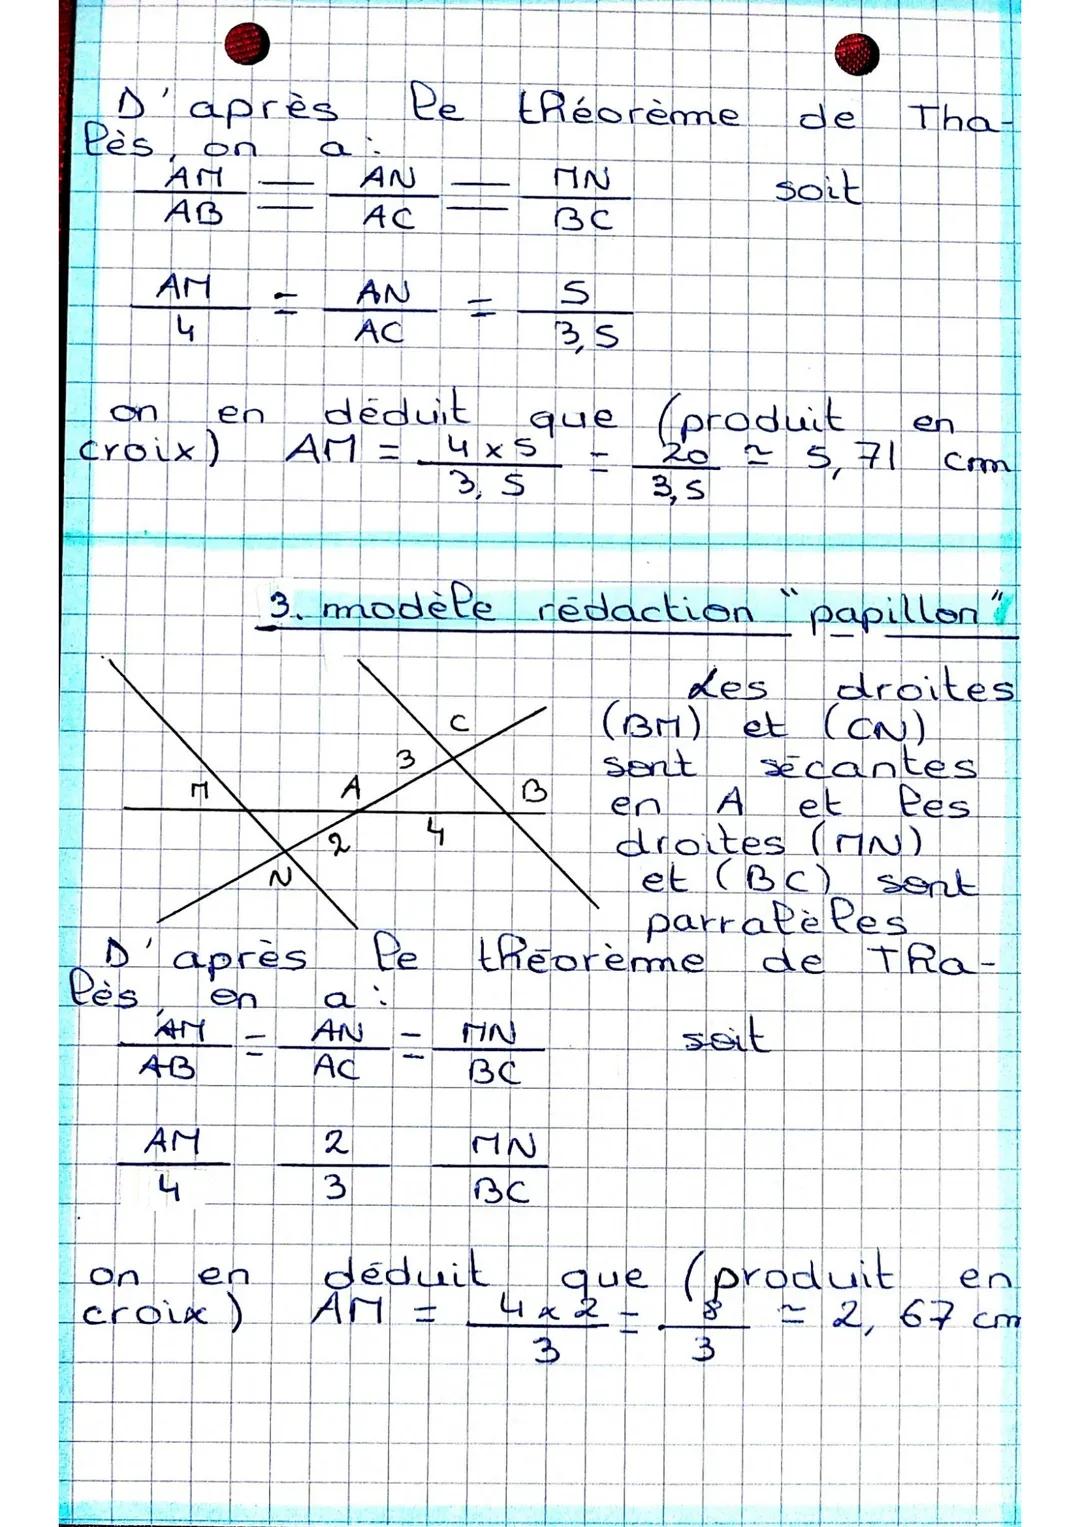 D'après le théorème de Tha-
lès, on a :
AM/AB = AN/AC = MN/BC soit
AM/4 = AN/AC = 5/3,5
on en déduit que (produit en
croix) AM = 4 x 5/3,5 = 20/3,5 ≃ 5,71 cm
3. modèle rédaction "papillon"
Les droites
(BM) et (CN)
sont sécantes
en A et les
droites (MN)
et (BC) sont
parralèles
C
3
M
A
B
4
2
N
D'après le théorème de Tha-
lès, on a :
AM/AB = AN/AC = MN/BC soit
AM/4 2/3 MN/BC
on en déduit que (produit en
croix) AM = 4 x 2/3 = 8/3 ≃ 2,67 cm